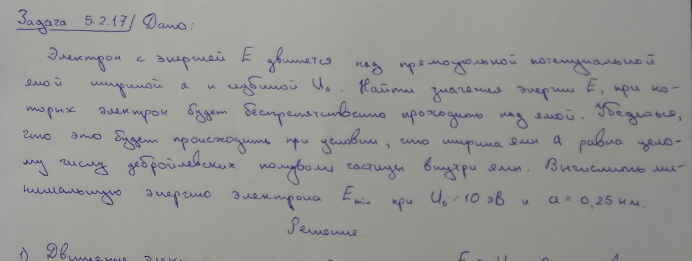 Задача 5.2.17/ Дано:
Электрон с энергией E движется над прямоугольной потенциальной
ямой шириной a и глубиной U₀. Найти значения энергии E, при ко-
торых электрон будет беспрепятственно проходить над ямой. Убедиться,
что это будет происходить при условии, что ширина ямы a равна цело-
му числу дебройлевских полуволн частицы внутри ямы. Вычислить ми-
нимальную энергию электрона E min при U₀ = 10 эВ и a = 0,25 нм.
Решение.
1) Движение